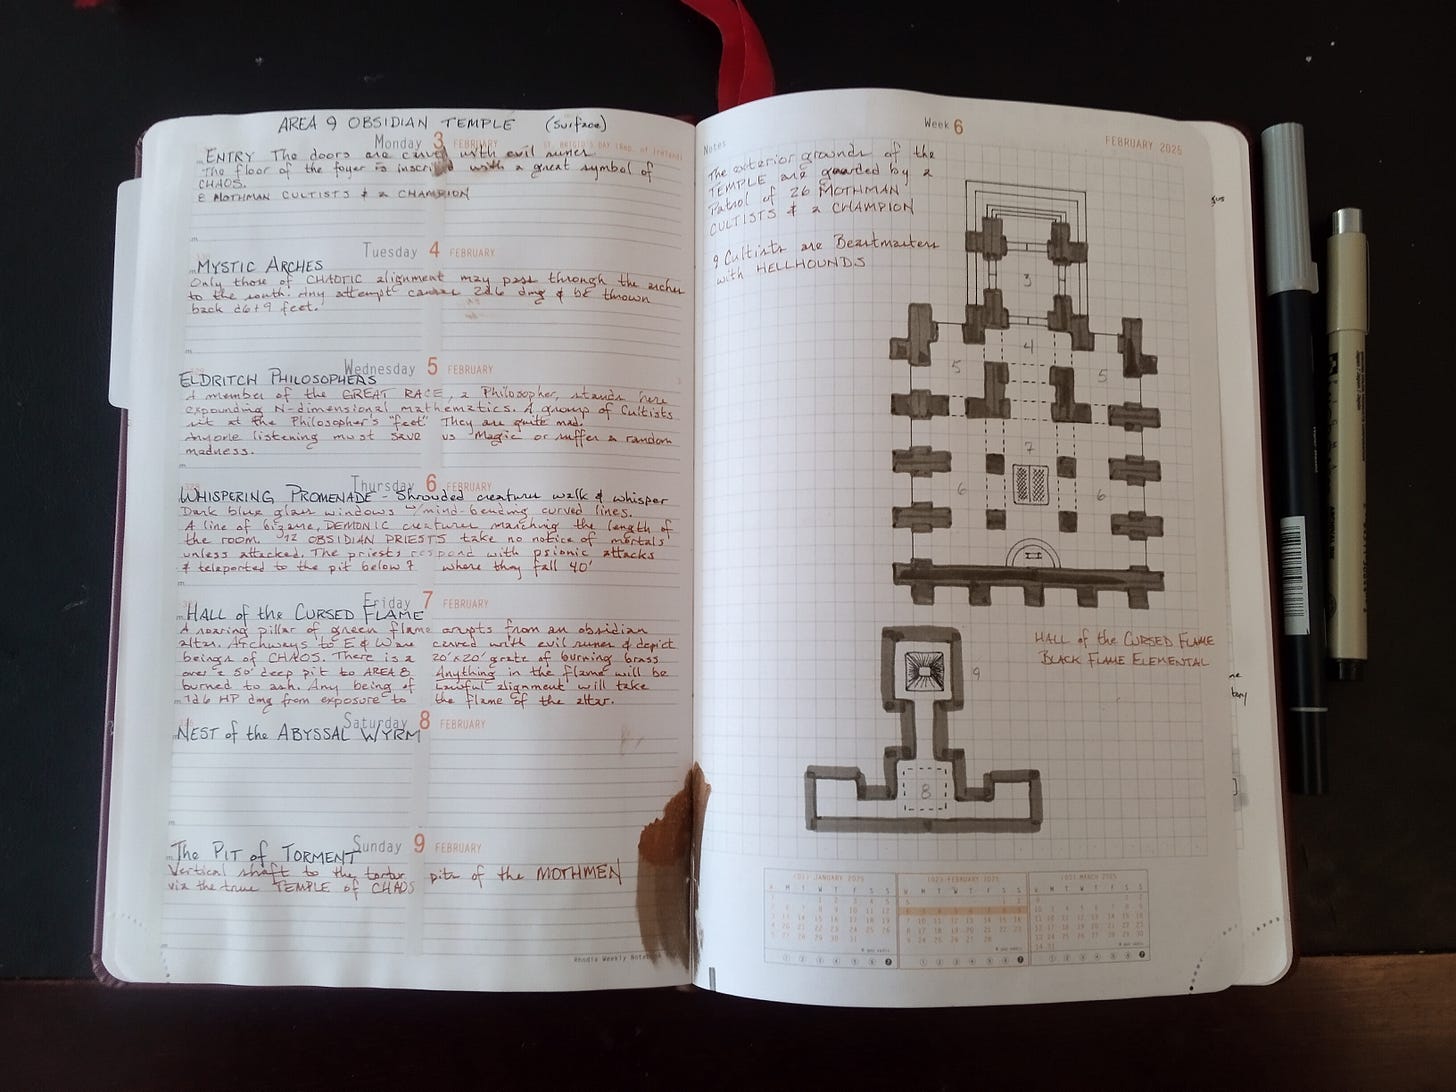 AREA 9 OBSIDIAN TEMPLE (Surface)
Monday 3 FEBRUARY
ENTRY The doors are carved with evil runes
The floor of the foyer is inscribed with a great symbol of
CHAOS.
8 MOTHMAN CULTISTS & a CHAMPION
Tuesday 4 FEBRUARY
MYSTIC ARCHES
Only those of CHAOTIC alignment may pass through the arches
to the south. Any attempt causes 2d6 dmg & be thrown
back d6+9 feet.
Wednesday 5 FEBRUARY
ELDRITCH PHILOSOPHERS
A member of the GREAT RACE, a Philosopher, stands here
expounding N-dimensional mathematics. A group of Cultists
sit at the Philosopher's "feet" They are quite mad.
Anyone listening must save vs Magic or suffer a random
madness.
Thursday 6 FEBRUARY
WHISPERING PROMENADE - Shrouded creatures walk & whisper
Dark blue glass windows w/mind-bending curved lines.
A line of bizarre, DEMONIC creatures marching the length of
the room. 12 OBSIDIAN PRIESTS take no notice of mortals
unless attacked. The priests respond with psionic attacks
& teleported to the pit below 7 where they fall 40'
Friday 7 FEBRUARY
HALL of the CURSED FLAME
A roaring pillar of green flame erupts from an obsidian
altar. Archways to E & W are carved with evil runes & depict
beings of CHAOS. There is a 20'x20' grate of burning brass
over a 50' deep pit to AREA 8 Anything in the flame will be
burned to ash. Any being of Lawful alignment will take
1d6 HP dmg from exposure to the flame of the altar.
Saturday 8 FEBRUARY
NEST of the ABYSSAL WYRM
Sunday 9 FEBRUARY
The PIT of TORMENT
Vertical shaft to the torture pits of the MOTHMEN
via the true TEMPLE of CHAOS
Week 6
Notes
FEBRUARY 2025
The exterior grounds of the
TEMPLE are guarded by a
Patrol of 26 MOTHMAN
CULTISTS & a CHAMPION
9 Cultists are Beastmasters
with HELLHOUNDS
3
4
5
5
7
6
6
HALL of the CURSED FLAME
BLACK FLAME ELEMENTAL
9
8
JANUARY 2025
FEBRUARY 2025
MARCH 2025